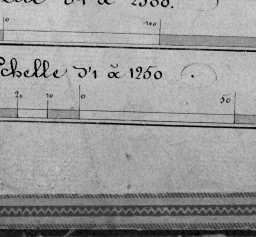 d'1 à 2500.
0 100
Echelle d'1 à 1250
20 10 0 50